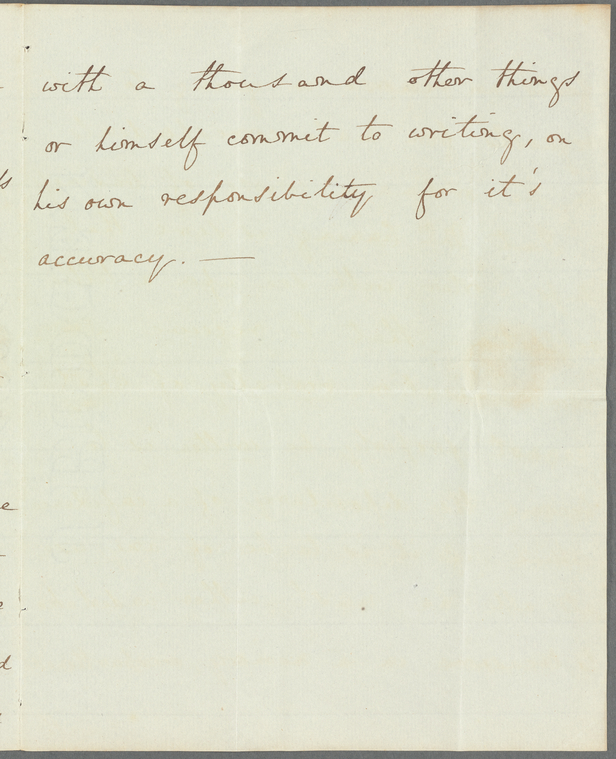 with a thousand other things
or himself commit to writing, on
his own responsibility for it's
accuracy. —